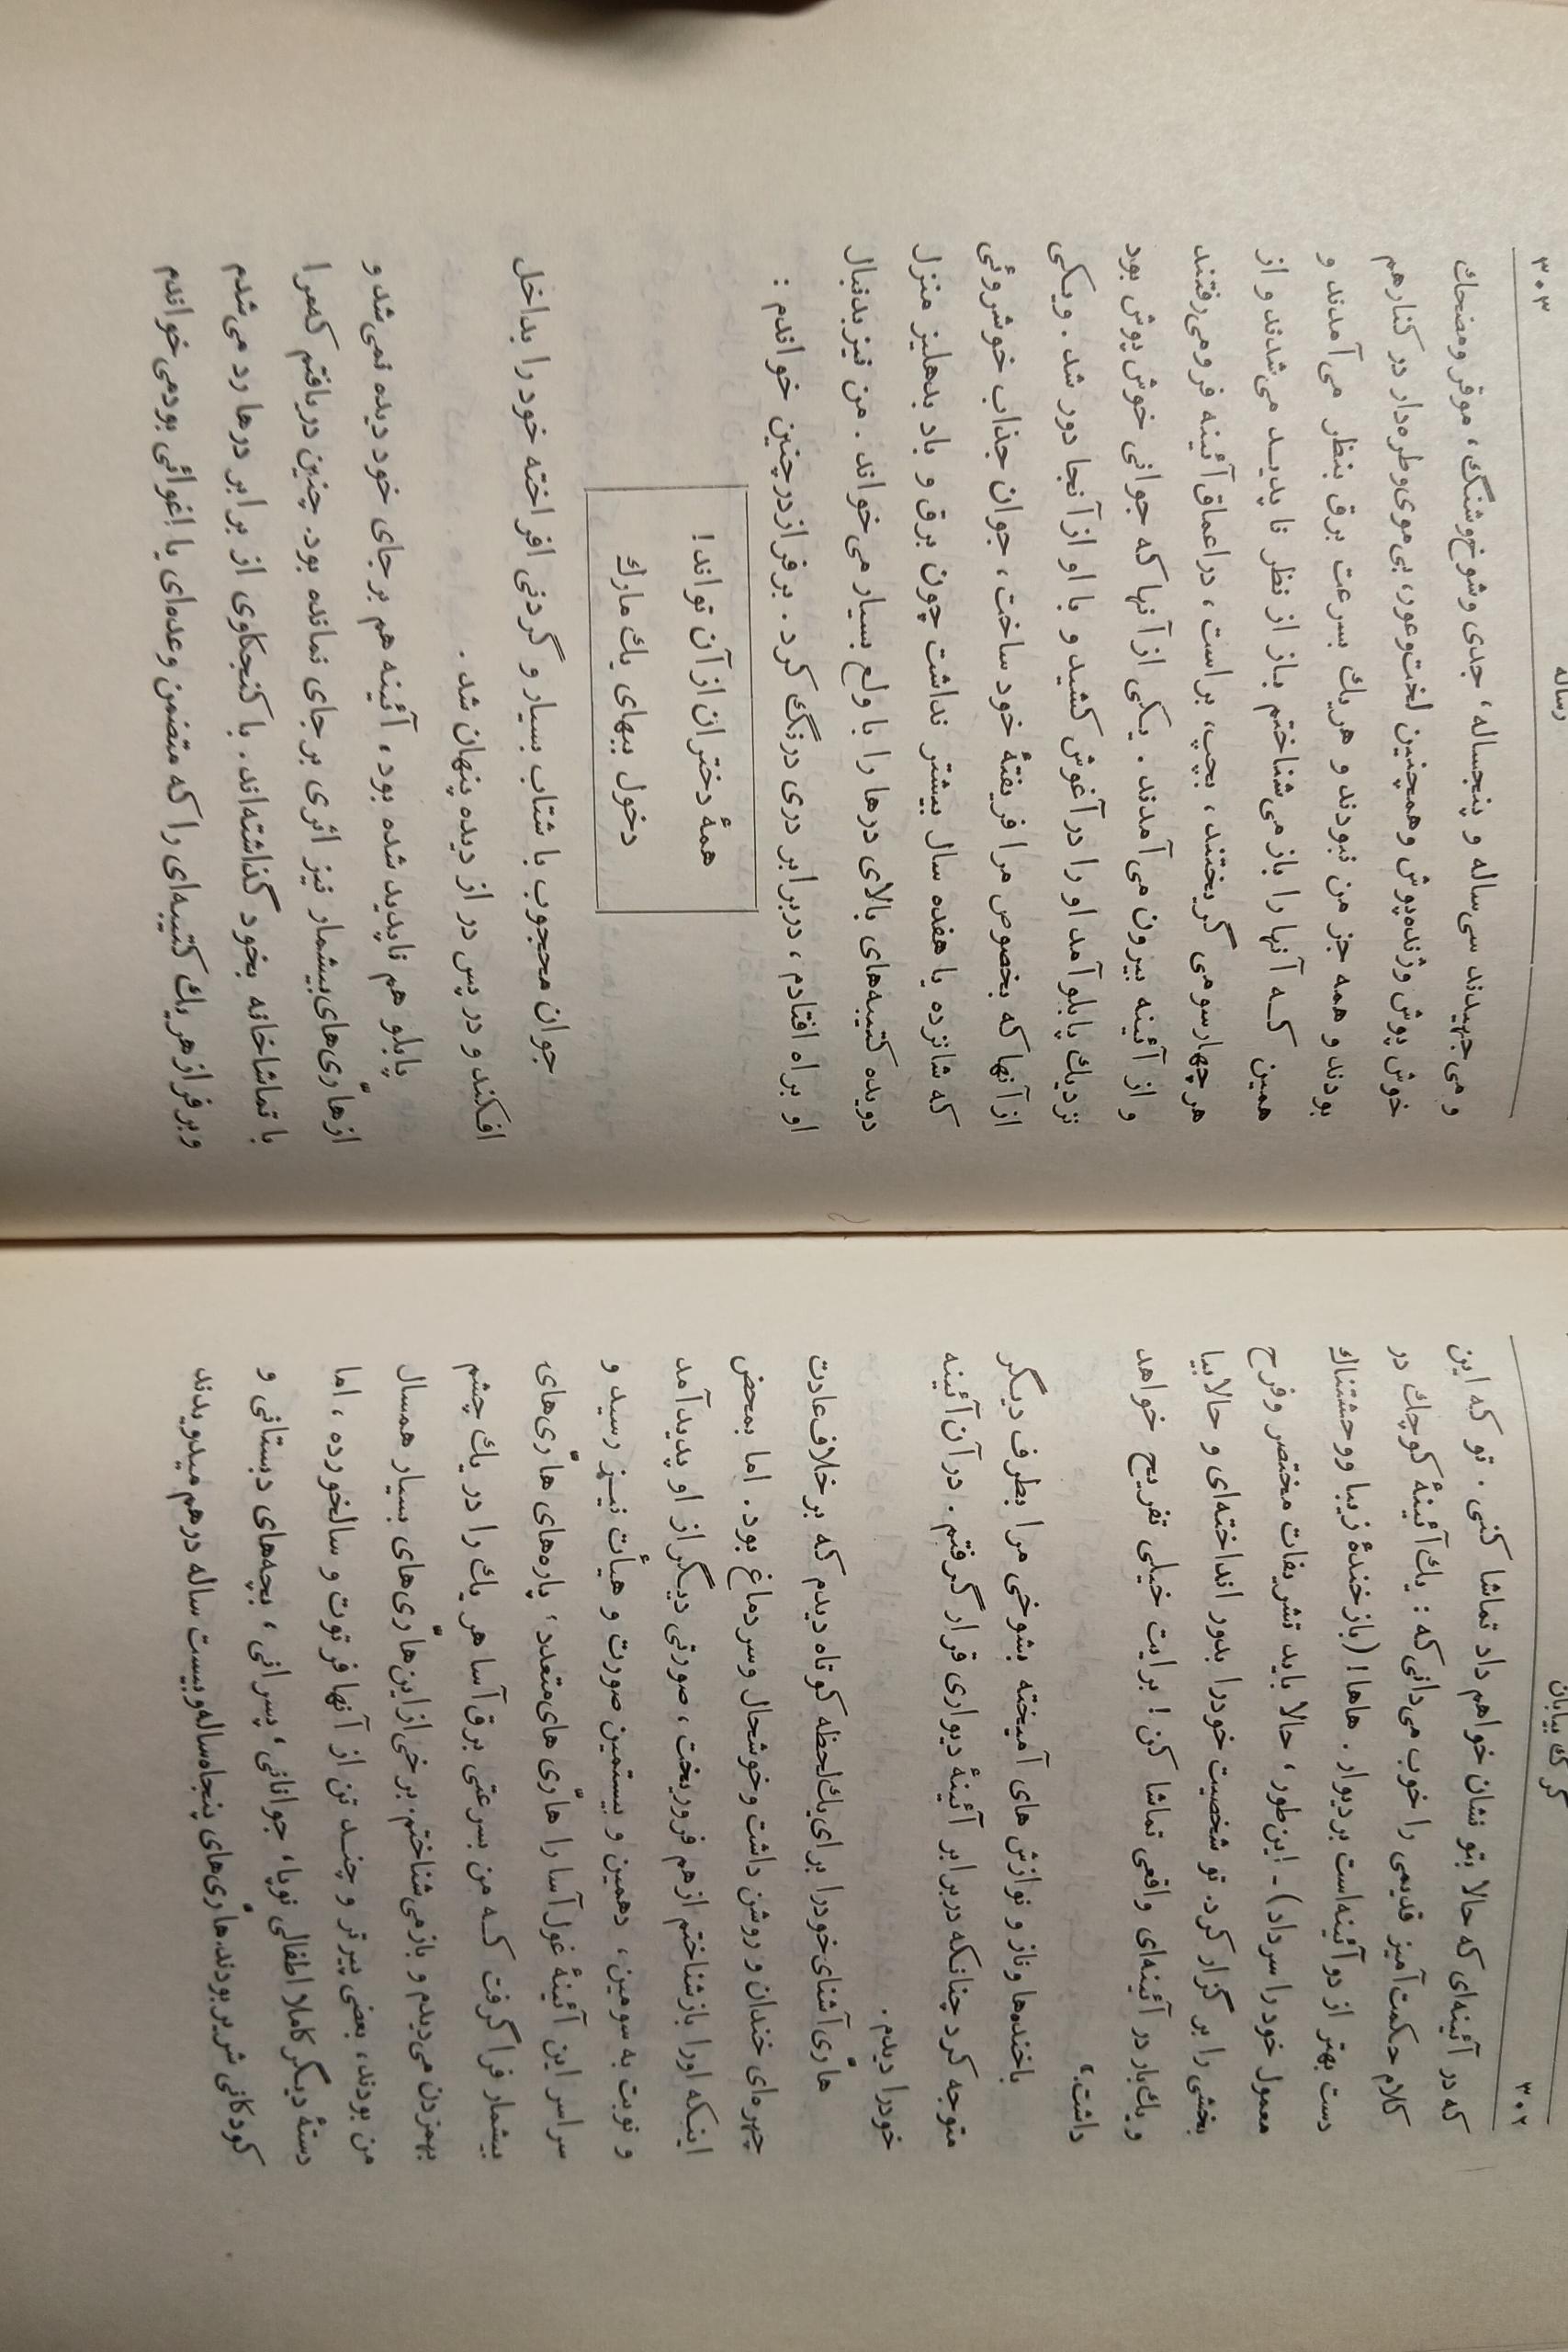 ۳۰۲
گرگ بیابان
که در آئینه‌ای که حالا بتو نشان خواهم داد تماشا کنی. تو که این
کلام حکمت‌آمیز قدیمی را خوب می‌دانی که: یك آئینهٔ کوچك در
دست بهتر از دو آئینه‌است بر دیوار. هاها! (باز خندهٔ زیبا ووحشتناك
معمول خود را سرداد) ـ این‌طور، حالا باید تشریفات مختصر وفرح
بخشی را بر گزار کرد. تو شخصیت خودرا بدور انداخته‌ای و حالا بیا
ویك‌بار در آئینه‌ای واقعی تماشا کن! برایت خیلی تفریح خواهد
داشت.»
باخنده‌ها وناز و نوازش های آمیخته بشوخی مرا بطرف دیگر
متوجه کرد چنانکه دربرابر آئینهٔ دیواری قرار گرفتم. در آن آئینه
خودرا دیدم.
هاری‌آشنای‌خودرا برای‌یك‌لحظه کوتاه دیدم که برخلاف‌عادت
چهره‌ای خندان و روشن داشت وخوشحال وسردماغ بود. اما بمحض
اینکه اورا بازشناختم ازهم فروریخت، صورتی دیگر از او پدید آمد
و نوبت به سومین، دهمین و بیستمین صورت و هیأت نیـز رسید و
سراسر این آئینهٔ غول‌آسا را هاری های‌متعدد، پاره‌های هاری‌های
بیشمار فراگرفت کـه من بسرعتی برق‌آسا هر یك را در یك چشم
بهمزدن می‌دیدم و بازمی‌شناختم.برخی‌ازاین‌هاری‌های بسیار همسال
من بودند، بعضی پیرتر و چنـد تن از آنها فرتوت و سالخورده، اما
دستهٔ دیگر کاملا اطفالی نوپا، جوانانی، پسرانی، بچه‌های دبستانی و
کودکانی شریر بودند.هاری‌های پنجاه‌ساله‌وبیست ساله درهم میدویدند
رساله
۳۰۳
و می‌جهیدند سی‌ساله و پنجساله، جدی وشوخ‌وشنگ، موقر ومضحك
خوش پوش وژنده‌پوش وهمچنین لخت‌وعور، بی‌موی‌وطره‌دار در کنارهم
بودند و همه جز من نبودند و هریك بسرعت برق بنظر می‌آمدند و
همین کـه آنها را باز می‌شناختم باز از نظر ناپدیـد می‌شدند و از
هر چهارسومی گریختند، بچپ، براست، دراعماق آئینه فرومی‌رفتند
و از آئینه بیرون می‌آمدند. یکی از آنها که جوانی خوش پوش بود
نزدیك پابلو آمد او را درآغوش کشید و با او از آنجا دور شد. ویکی
از آنها که بخصوص مرا فریفتهٔ خود ساخت، جوان جذاب خوشروئی
که شانزده یا هفده سال بیشتر نداشت چون برق و باد بدهلیز منزل
دویده کتیبه‌های بالای درها را با ولع بسیار می‌خواند. من نیز بدنبال
او براه افتادم، دربرابر دری درنگ کرد. بر فرازدرچنین خواندم:
همهٔ دختران از آن تواند!
دخول ببهای یك مارك
جوان محجوب با شتاب بسیار و گردنی افراخته خود را بداخل
افکند و در پس در از دیده پنهان شد.
پابلو هم ناپدید شده بود، آئینه هم بر جای خود دیده نمی‌شد و
ازهاری‌های‌بیشمار نیز اثری بر جای نمانده بود. چنین دریافتم که‌مرا
با تماشاخانه بخود گذاشته‌اند. با کنجکاوی از برابر درها رد می‌شدم
وبرفراز هریك کتیبه‌ای را که متضمن وعده‌ای یا اغوائی بودمی‌خواندم